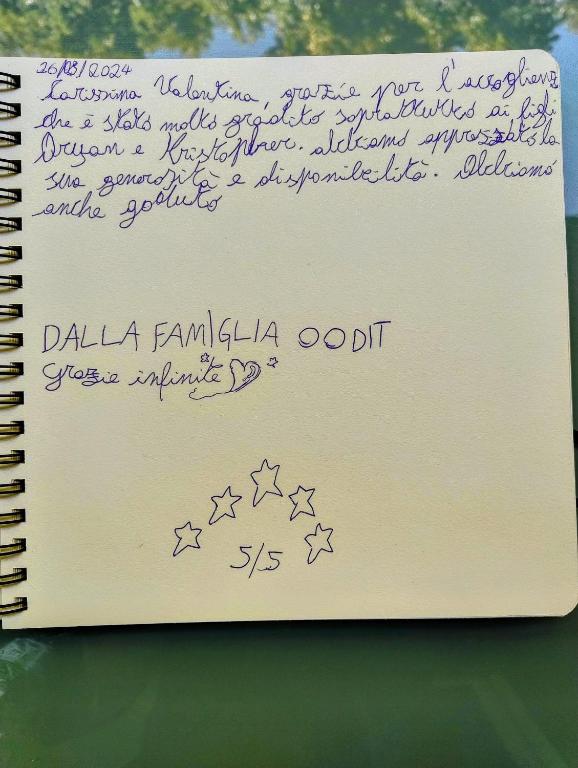 26/08/2024
Carissima Valentina, grazie per l'accoglienza
che è stato molto gradito soprattutto ai figli
Dryan e Kristopher. abbiamo apprezzato la
sua generosità e disponibilità. Abbiamo
anche goduto
DALLA FAMIGLIA OODIT
Grazie infinite
5/5